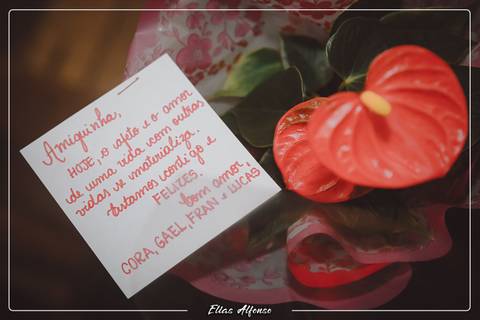 Amiguinha,
HOJE, o afeto e o amor
de uma vida com outras
vidas se materializa.
Estamos contigo e
FELIZES.
Com amor,
CORA, GAEL, FRAN e LUCAS
Elias Alfonso